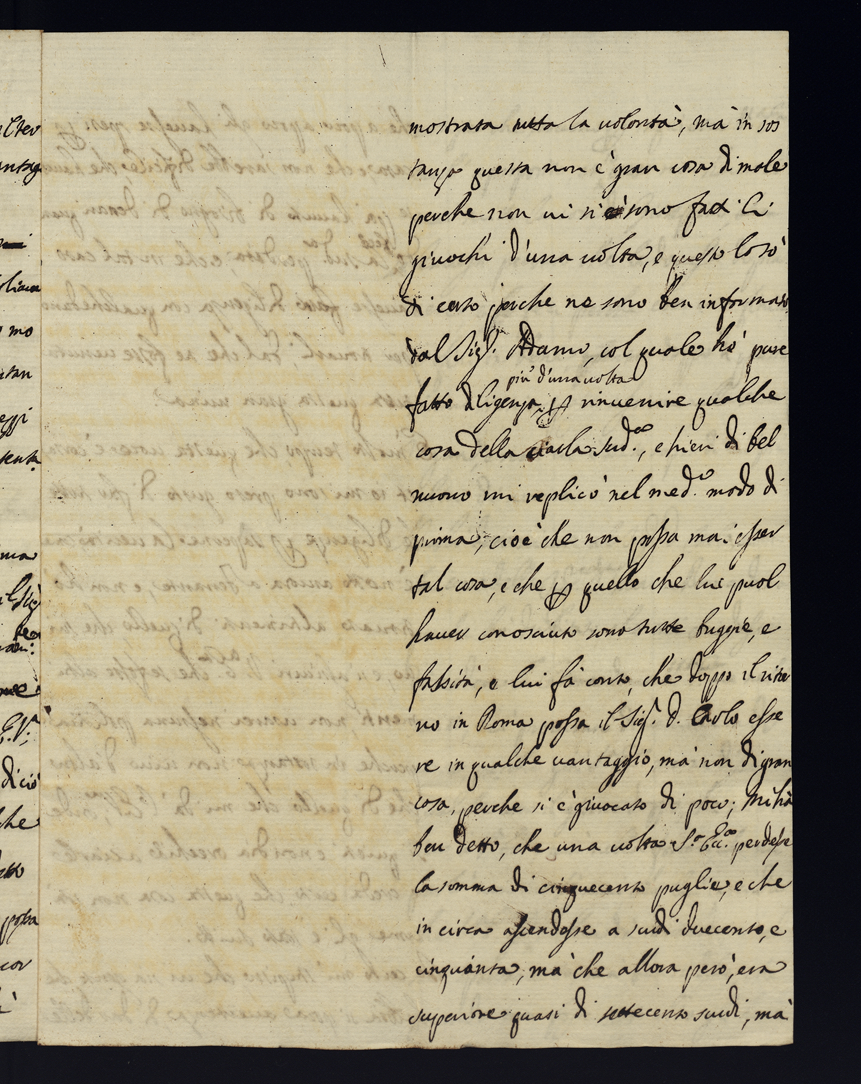 mostrata tutta la volontà, mà in sos
tanza questa non è gran cosa di male
perche non vi si sono fatti li
giuochi d'una volta, e questo lo sò
di certo perche ne sono ben informato
dal Sig.r Adami, col quale hò pure
più d'una volta
fatto diligenza, per rinvenire qualche
cosa della ciarla sud.a, e hieri di bel
nuovo mi replicò nel med.o modo di
prima, cioè che non possa mai esser
tal cosa, e che per quello che lui puol
haver conosciuto sono tutte buggie, e
falsità, e lui fà conto, che doppo il ritor
no in Roma possa il Sig.r D. Carlo esse
re in qualche vantaggio, mà non di gran
cosa, perche si è giuocato di poco; Mi hà
ben detto, che una volta S.a Ecc.a perdesse
la somma di cinquecento puglie, e che
in circa ascendesse a scudi duecento, e
cinquanta, mà che allora però, era
superiore quasi di settecento scudi, mà